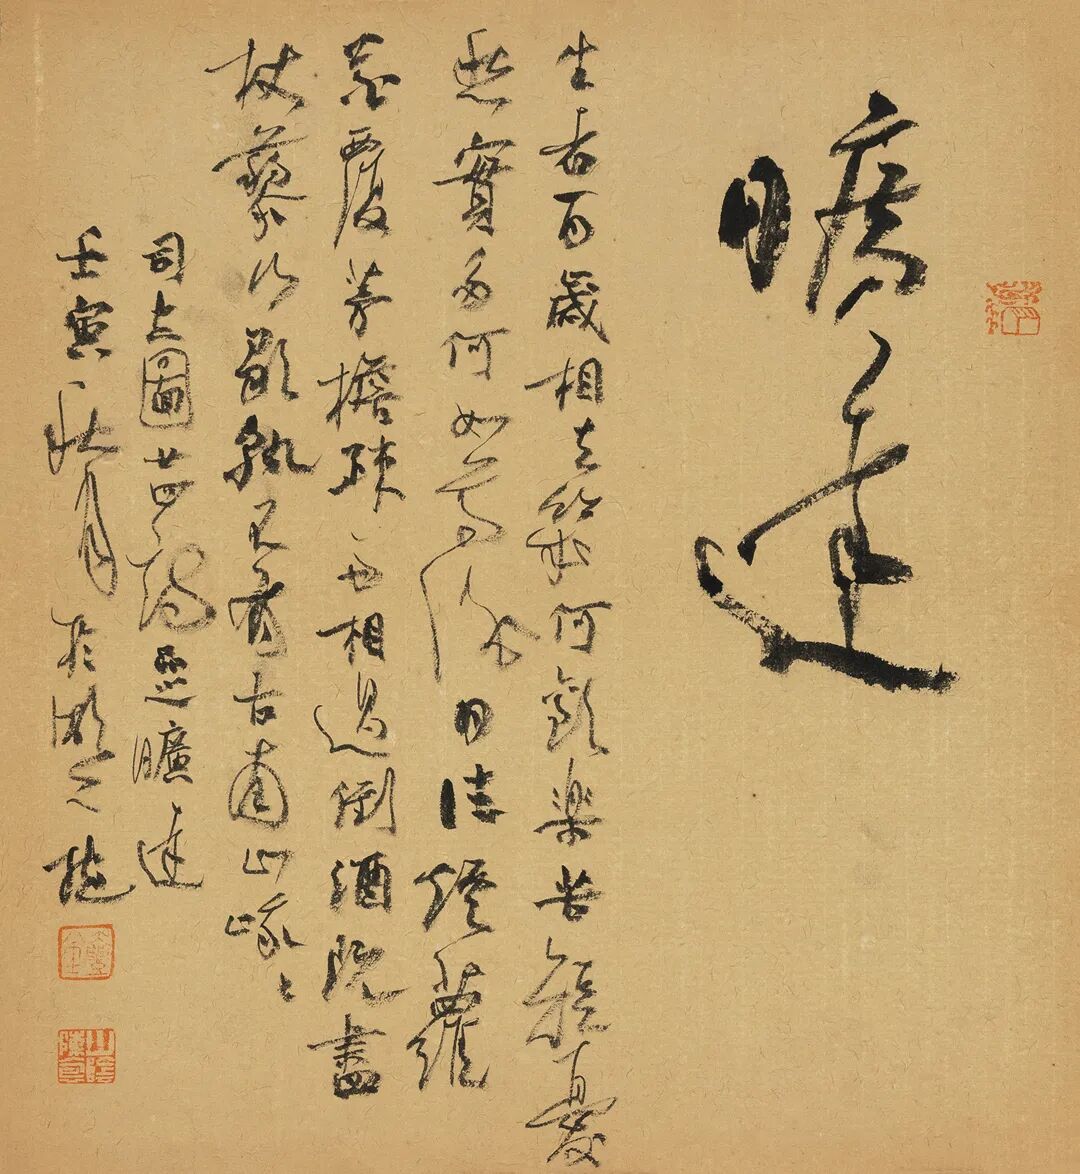 曠達
生者百歲相去幾何歡樂苦短憂
愁實多何如尊酒日往煙蘿
花覆茅檐疎雨相過倒酒既盡
杖藜行歌孰不有古南山峨〻
司空圖廿四詩品曠達
壬寅秋月於湖上